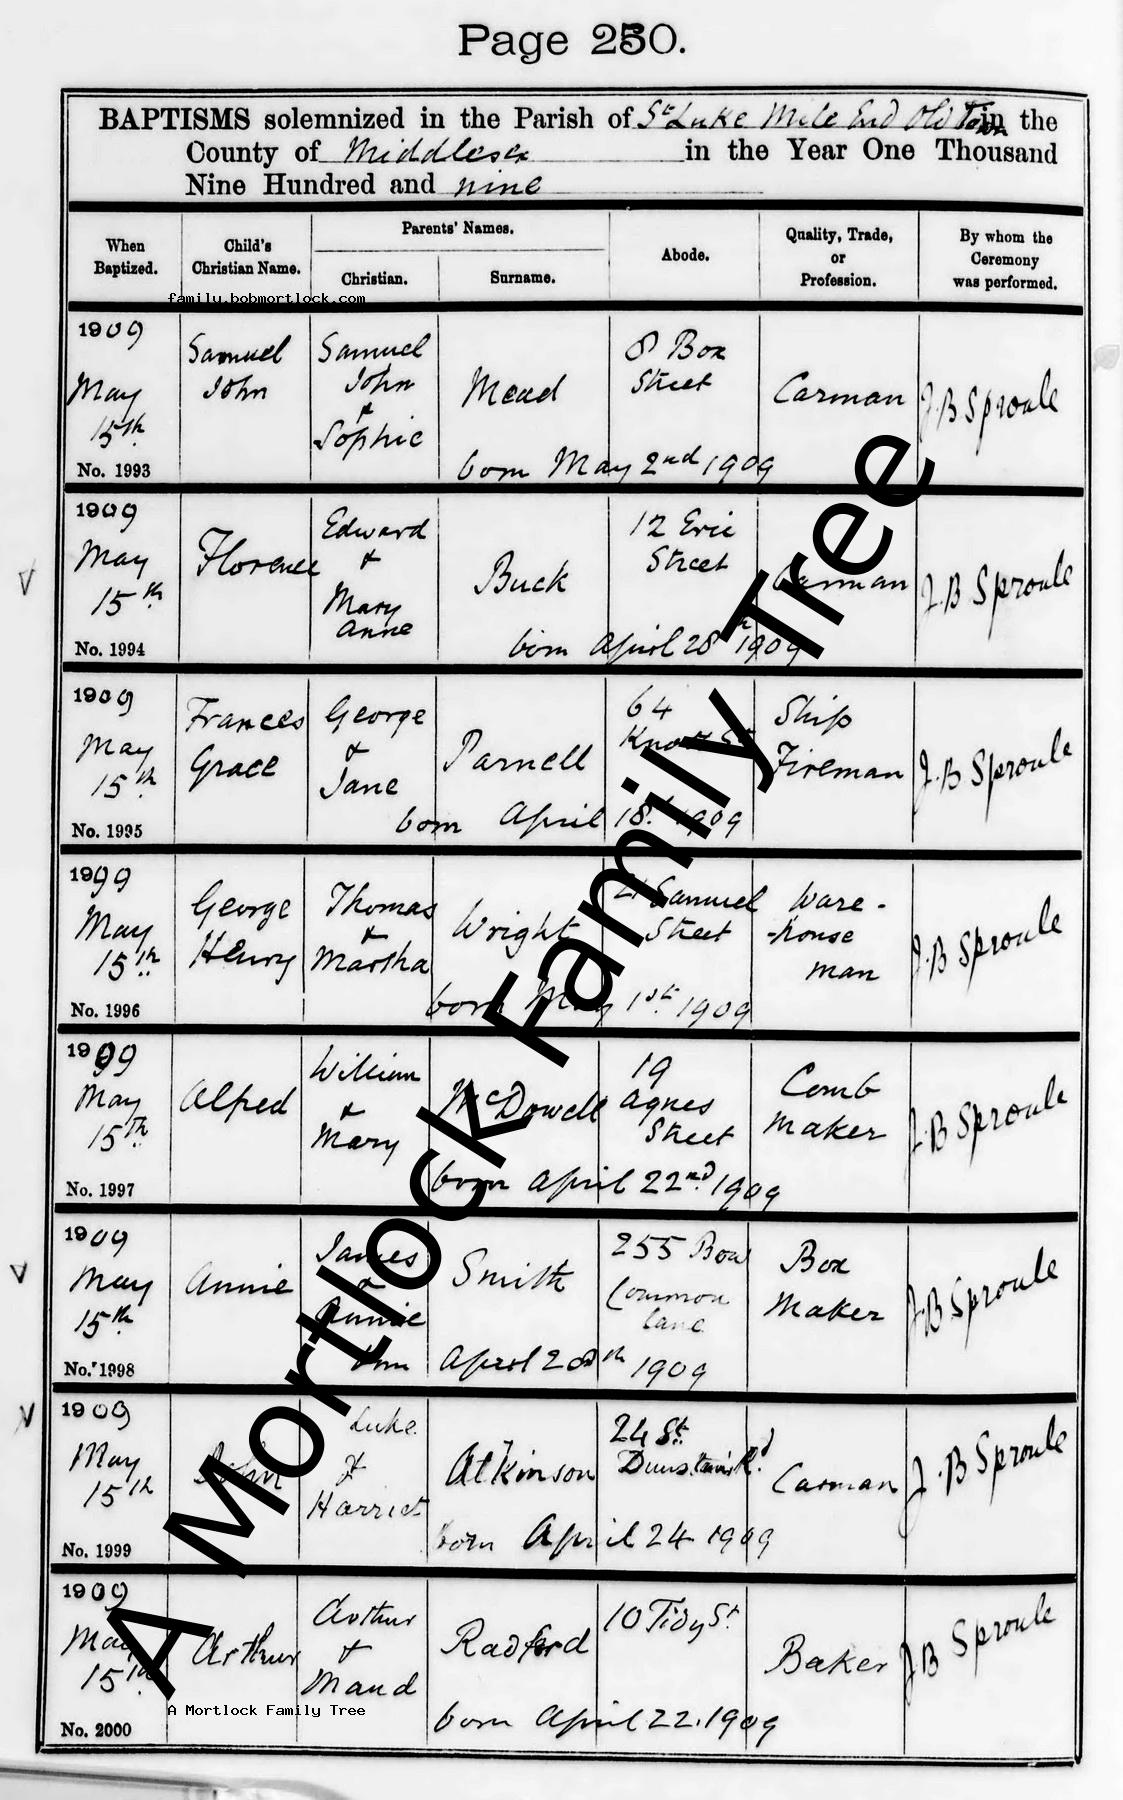 Page 250.
BAPTISMS solemnized in the Parish of St Luke Mile End Old Town in the
County of Middlesex in the Year One Thousand
Nine Hundred and nine
When Baptized.
Child's Christian Name.
Parents' Names.
Christian.
Surname.
Abode.
Quality, Trade, or Profession.
By whom the Ceremony was performed.
family.bobmortlock.com
1909
May
15th
No. 1993
Samuel
John
Samuel
John
&
Sophie
Mead
8 Box
Street
Carman
J.B Sproule
born May 2nd 1909
1909
May
15th
No. 1994
Florence
Edward
&
Mary
Anne
Buck
12 Eric
Street
Carman
J.B Sproule
born April 28th 1909
1909
May
15th
No. 1995
Frances
Grace
George
&
Jane
Parnell
64
St
Ship
Fireman
J.B Sproule
born April 18th 1909
1909
May
15th
No. 1996
George
Henry
Thomas
&
Martha
Wright
21 Samuel
Street
Ware-
-house
man
J.B Sproule
born May 1st 1909
1909
May
15th
No. 1997
Alfred
William
&
Mary
McDowell
19
Agnes
Street
Comb
Maker
J.B Sproule
born April 22nd 1909
1909
May
15th
No. 1998
Annie
James
&
Annie
Smith
255 Bow
Common
Lane
Box
Maker
J.B Sproule
born April 28th 1909
1909
May
15th
No. 1999
John
Luke
&
Harriet
Atkinson
24 St.
Dunstan's Rd
Carman
J.B Sproule
born April 24 1909
1909
May
15th
No. 2000
Arthur
Arthur
&
Maud
Radford
10 Tidy St
Baker
J B Sproule
born April 22. 1909
A Mortlock Family Tree
A Mortlock Family Tree